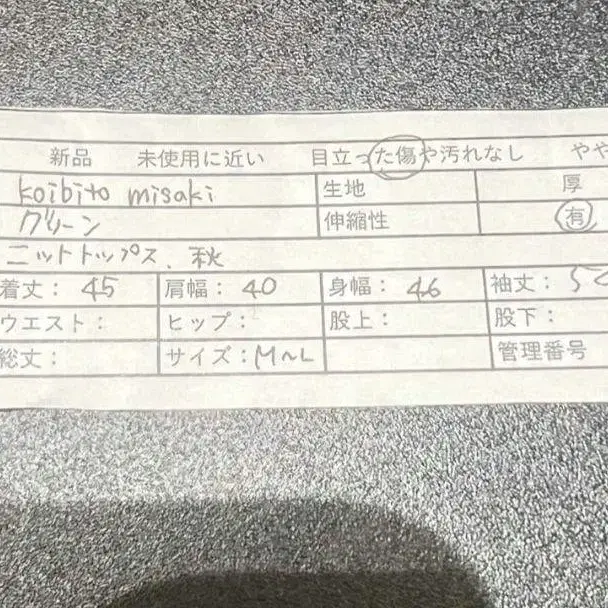 新品 未使用に近い 目立った傷や汚れなし やや
koibito misaki 生地 厚
グリーン 伸縮性 有
ニットトップス、秋
着丈: 45 肩幅: 40 身幅: 46 袖丈:
ウエスト: ヒップ: 股上: 股下:
総丈: サイズ: M~L 管理番号